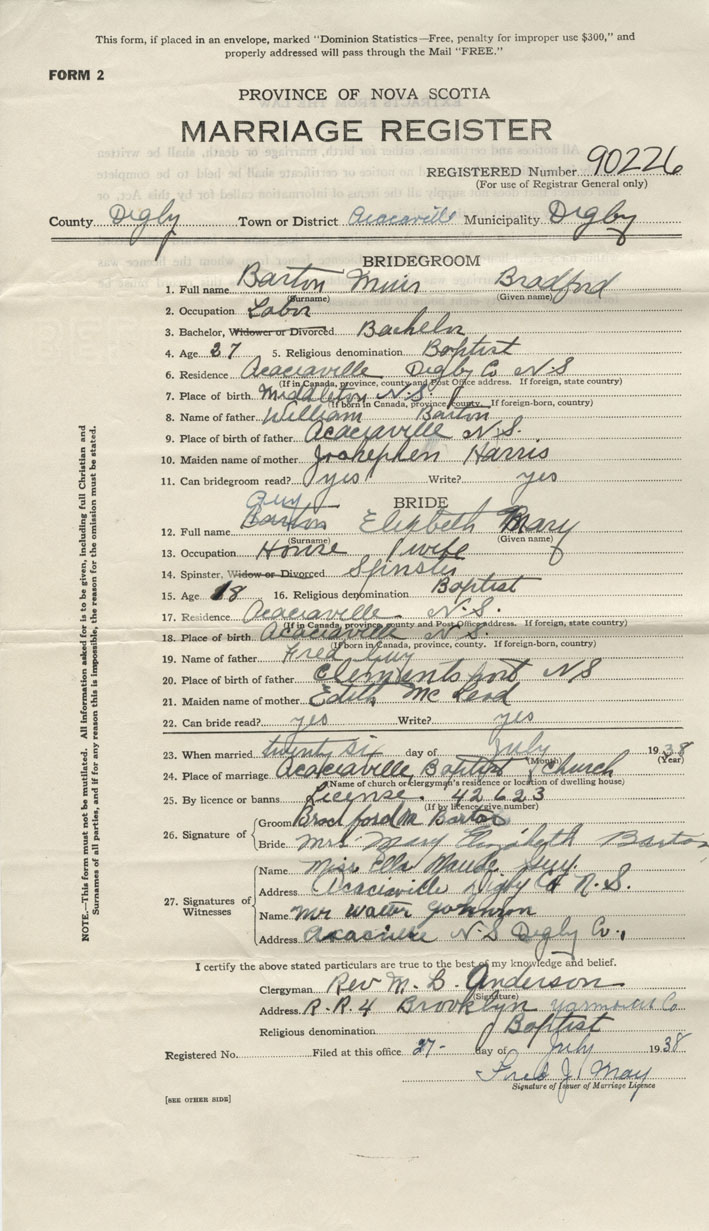 This form, if placed in an envelope, marked "Dominion Statistics—Free, penalty for improper use $300," and
properly addressed will pass through the Mail "FREE."
FORM 2
PROVINCE OF NOVA SCOTIA
MARRIAGE REGISTER
REGISTERED Number 90226
(For use of Registrar General only)
County Digby Town or District Acacaville Municipality Digby
BRIDEGROOM
1. Full name Barton Muir Bradford
(Surname) (Given name)
2. Occupation Labor
3. Bachelor, Widower or Divorced Bachelor
4. Age 27 5. Religious denomination Baptist
6. Residence Acaciaville Digby Co N.S
(If in Canada, province, county and Post Office address. If foreign, state country)
7. Place of birth Middleton N.S.
(If born in Canada, province, county. If foreign-born, country)
8. Name of father William Barton
9. Place of birth of father Acaciaville N.S.
10. Maiden name of mother Joskephen Harris
11. Can bridegroom read? yes Write? yes
BRIDE
Guy
12. Full name Barton Elizbeth Mary
(Surname) (Given name)
13. Occupation House wife
14. Spinster, Widow or Divorced Spinster
15. Age 18 16. Religious denomination Baptist
17. Residence Acaciaville N.S.
(If in Canada, province, county and Post Office address. If foreign, state country)
18. Place of birth Acaciaville N.S.
(If born in Canada, province, county. If foreign-born, country)
19. Name of father Fred Guy
20. Place of birth of father Clementsport NS
21. Maiden name of mother Edith McLeod
22. Can bride read? yes Write? yes
23. When married twenty six day of July 1938
(Month) (Year)
24. Place of marriage Acaciaville Baptist Church
(Name of church or clergyman's residence or location of dwelling house)
25. By licence or banns License. 42623
(If by licence give number)
26. Signature of Groom Bradford M Barton
Bride Mrs Mary Elizabeth Barton
27. Signatures of Witnesses
Name Miss Ella Maude Guy.
Address Acaciaville Digby Co N.S.
Name Mr Walter Johnson
Address N.S Digby Co.,
I certify the above stated particulars are true to the best of my knowledge and belief.
Clergyman Rev M. L. Anderson
(Signature)
Address R.R.4 Brooklyn Yarmouth Co
Religious denomination Baptist
Registered No. Filed at this office 27- day of July 1938
Fred J. May
Signature of Issuer of Marriage Licence
[SEE OTHER SIDE]
NOTE.—This form must not be mutilated. All information asked for is to be given, including full Christian and
Surnames of all parties, and if for any reason this is impossible, the reason for the omission must be stated.